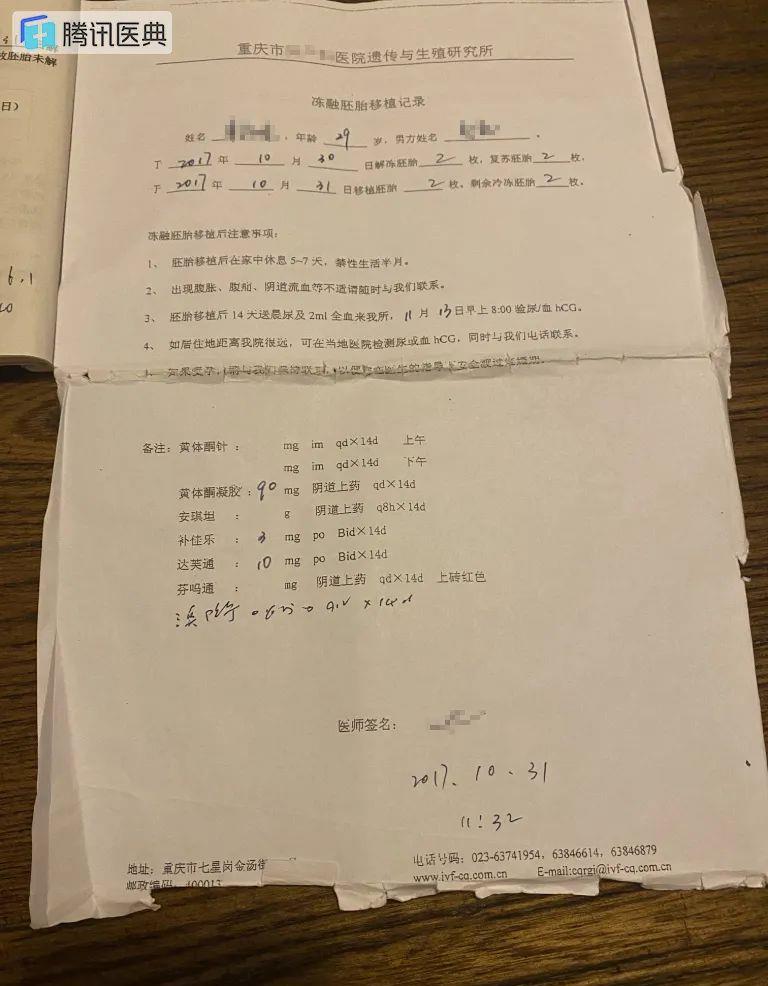 腾讯医典
胚胎未解
日）
6.1
重庆市医院遗传与生殖研究所
冻融胚胎移植记录
姓名 ，年龄 29 岁，男方姓名 。
于 2017 年 10 月 30 日解冻胚胎 2 枚，复苏胚胎 2 枚，
于 2017 年 10 月 31 日移植胚胎 2 枚，剩余冷冻胚胎 2 枚。
冻融胚胎移植后注意事项：
1、 胚胎移植后在家中休息 5~7 天，禁性生活半月。
2、 出现腹胀、腹痛、阴道流血等不适请随时与我们联系。
3、 胚胎移植后 14 天送晨尿及 2ml 全血来我所， 11 月 13 日早上 8:00 验尿/血 hCG。
4、 如居住地距离我院很远，可在当地医院检测尿或血 hCG，同时与我们电话联系。
如果受孕，请与我们保持联系，以便在医生的指导下安全渡过
备注：黄体酮针： mg im qd×14d 上午
mg im qd×14d 下午
黄体酮凝胶：90 mg 阴道上药 qd×14d
安琪坦 ： g 阴道上药 q8h×14d
补佳乐 ： 3 mg po Bid×14d
达芙通 ： 10 mg po Bid×14d
芬吗通 ： mg 阴道上药 qd×14d 上砖红色
医师签名：
2017. 10. 31
11:32
地址：重庆市七星岗金汤街
邮政编码：400013
电话号码：023-63741954，63846614，63846879
www.ivf-cq.com.cn E-mail:cqrgi@ivf-cq.com.cn